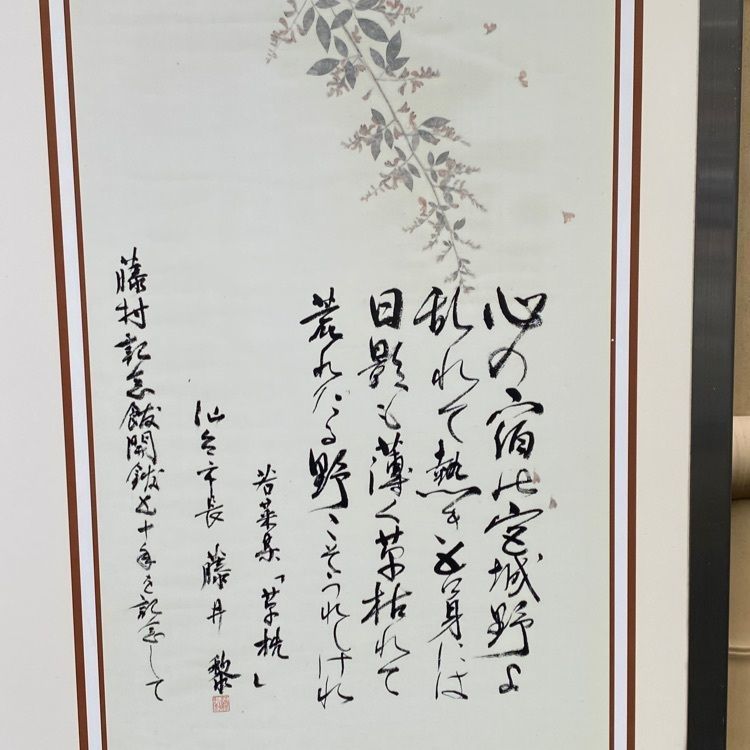 心の宿の宮城野よ
乱れて熱き吾身には
日影も薄く草枯れて
荒れたる野こそうれしけれ
若菜集「草枕」
仙台市長 藤井 黎
藤村記念館開館五十年を記念して